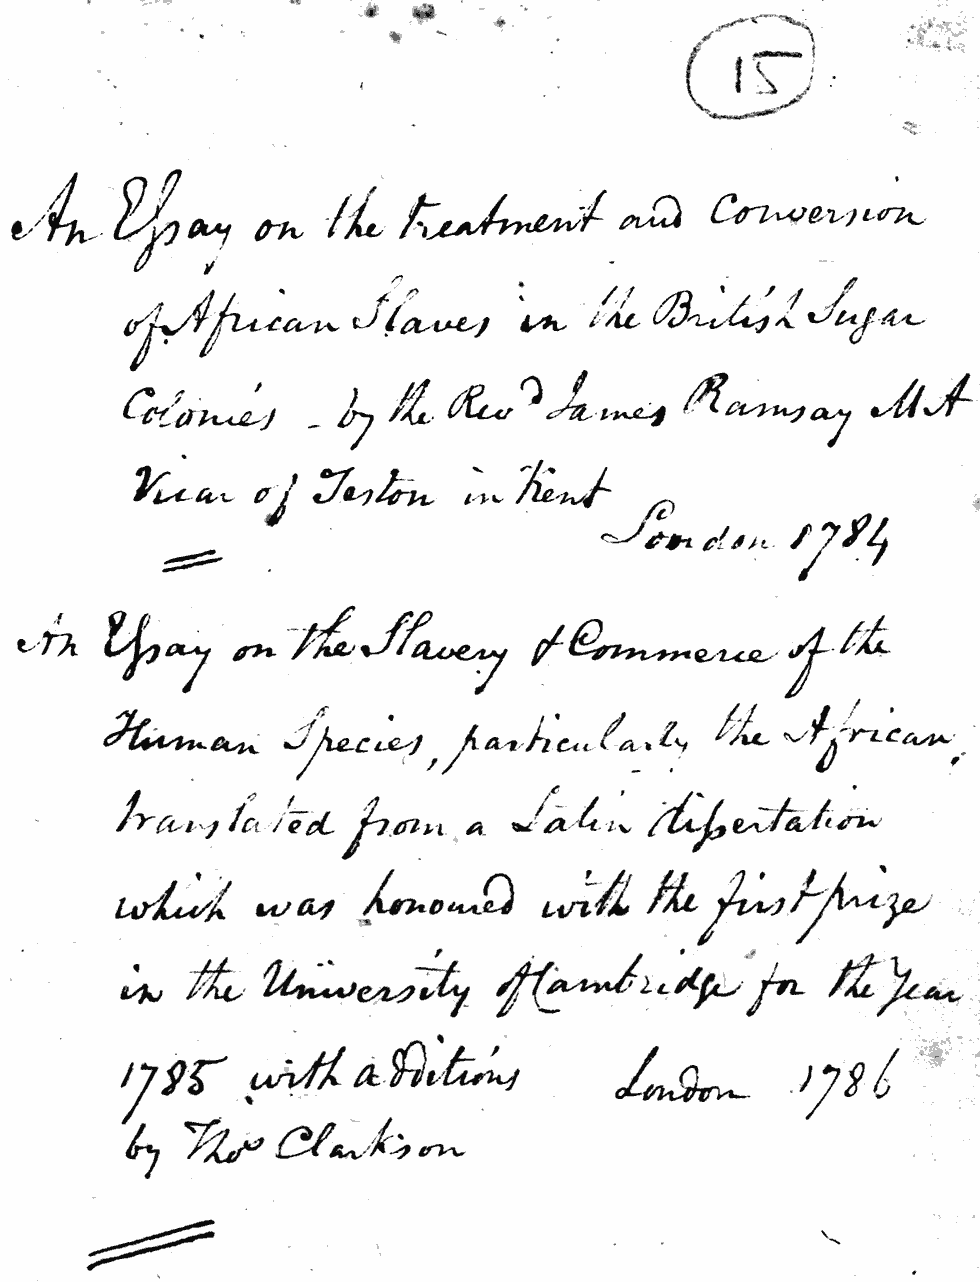 15
An Essay on the treatment and Conversion
of African Slaves in the British Sugar
Colonies - by the Revd James Ramsay M A
Vicar of Teston in Kent
London 1784
An Essay on the Slavery & Commerce of the
Human Species, particularly the African,
translated from a Latin dissertation
which was honoured with the first prize
in the University of Cambridge for the Year
1785 with additions London 1786
by Thos Clarkson